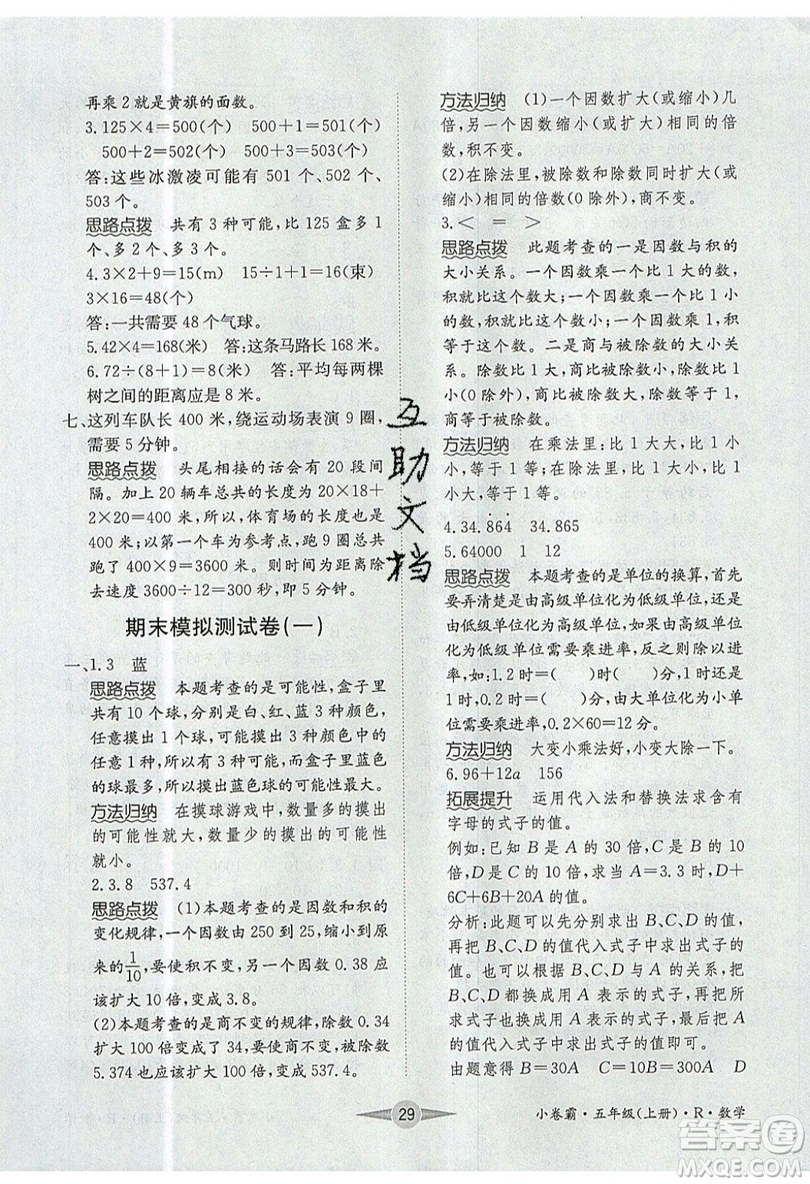 再乘 2 就是黄旗的面数。
3.125×4=500(个) 500+1=501(个)
500+2=502(个) 500+3=503(个)
答:这些冰激凌可能有 501 个、502 个、
503 个。
思路点拨 共有 3 种可能,比 125 盒多 1
个、多 2 个、多 3 个。
4.3×2+9=15(m) 15÷1+1=16(束)
3×16=48(个)
答:一共需要 48 个气球。
5.42×4=168(米) 答:这条马路长 168 米。
6.72÷(8+1)=8(米) 答:平均每两棵
树之间的距离应是 8 米。
七、这列车队长 400 米,绕运动场表演 9 圈,
需要 5 分钟。
思路点拨 头尾相接的话会有 20 段间
隔。加上 20 辆车总共的长度为 20×18
+2×20=400 米,体育场的长度也为
400 米,以第一个车为参考点,跑 9 圈总共
跑了 9×400=3600 米。时间为距离除
去速度 3600÷12=300 秒,即 5 分钟。
期末模拟测试卷(一)
一、1.3 蓝
思路点拨 本题考查的是可能性,盒子里
共有 10 个球,分白、红、蓝 3 种颜色,
任意摸出 1 个球,可能摸出 3 种颜色中
的任意一种,有 3 种可能,而盒子里蓝色
的球最多,所以摸出蓝色球的可能性最大。
方法归纳 在摸球游戏中,数量多的摸出
的可能性就大,数量少的摸出的可能性
就小。
2.3.8 537.4
思路点拨 (1)本题考查的是因数和积的
变化规律,一个因数由 250 到 25,缩小到原
来的1/10,要使积不变,另一个因数 0.38 应
该扩大 10 倍,变成 3.8。
(2)本题考查的是商不变的规律,除数 0.34
扩大 100 倍变成了 34,要使商不变,被除数
5.374 也应该扩大 100 倍,变成 537.4。
方法归纳 (1)一个因数扩大(或缩小)几
倍,另一个因数缩小(或扩大)相同的倍
数,积不变。
(2)在除法里,被除数和除数同时扩大(或
缩小)相同的倍数(0 除外),商不变。
3.< = >
思路点拨 此题考查的一是因数与积的
大小关系。一个因数乘一个比 1 大的数,
积就比这个数大;一个因数乘一个比 1 小
的数,积就比这个数小;一个因数乘 1,积
就等于这个因数。二是商与被除数的大小
关系。除数比 1 大,商就比被除数小;除数
比 1 小(0 除外),商就比被除数大;除数是
1(0 除外),商就等于被除数。
方法归纳 在乘法里:比 1 大,大;比 1
小,小;等于 1,等于。在除法里,比 1 大,
小;比 1 小,大;等于 1,等于。
4.34.8̇64̇ 34.865
5.64000 1 12
思路点拨 本题考查的是单位的换算,首先
要弄清楚是由高级单位化为低级单位,还是
由低级单位化为高级单位。如果由高级单位
化为低级单位需要乘进率,反之则除以进
率。如:1.2 时=( )时( )分,1.2 时还剩
1 时,余 0.2 时=( )分,由大单位化为小单
位需要乘进率,0.2×60=12,所以填 12。
方法归纳 大变小乘法好,小变大除一下。
6.96+12a 156
拓展提升 运用代入法和替换法求含有
字母的式子的值。
例如:已知 B 是 A 的 30 倍,C 是 B 的 10
倍,D 是 C 的 10 倍,求当 A=3.3 时,D+
6C+6B+20A 的值。
分析:此题可以先分别求出 B、C、D 的值,
再把 B、C、D 的值代入式子中求出式子的
值;也可以先求出 B、C、D 与 A 的关系,把
B、C、D 都替换成用 A 表示的式子,再把
用 A 表示的式子代入式子中,最后再把 A
的值代入式子中求出式子的值即可。
由题意得 B=30A C=10B=300A D
29
小卷霸·五年级(上册)·R·数学
互助文档
答案圈
MXQE.COM